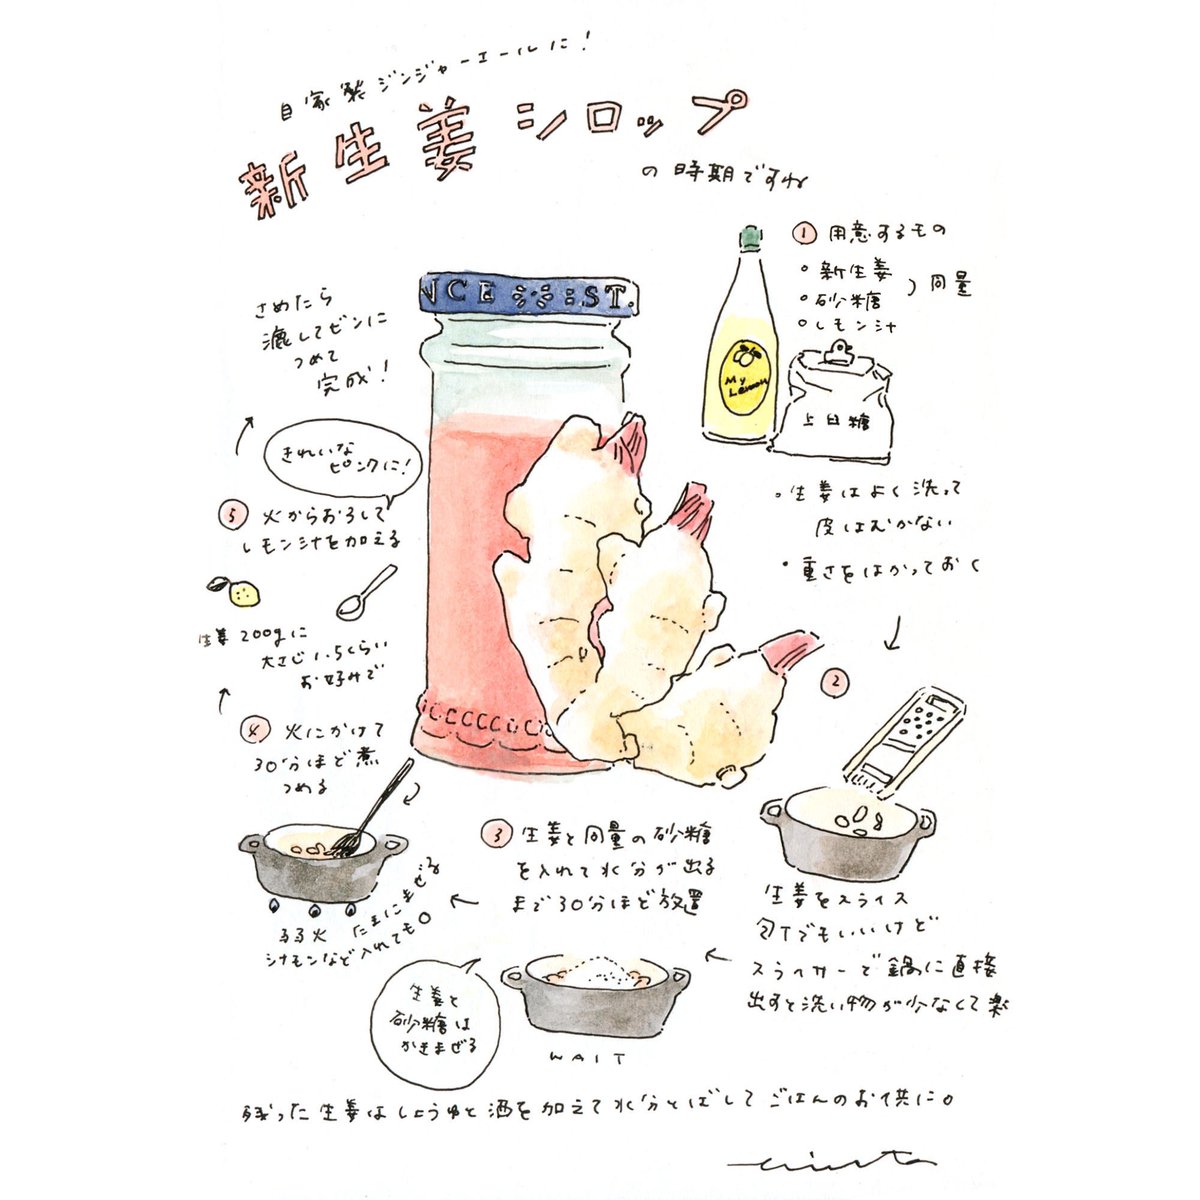 自家製ジンジャーエールに!
新生姜シロップ
の時期ですね
① 用意するもの
・新生姜
・砂糖
・レモン汁
) 同量
My
Lemon
上白糖
・生姜はよく洗って
皮はむかない
・重さをはかっておく
②
生姜をスライス
包丁でもいいけど
スライサーで鍋に直接
出すと洗い物が少なくて楽
③ 生姜と同量の砂糖
を入れて水分が出る
まで30分ほど放置
生姜と
砂糖は
かきまぜる
WAIT
④ 火にかけて
30分ほど煮
つめる
弱火
たまにまぜる
シナモンなど入れても○
⑤ 火からおろして
レモン汁を加える
きれいな
ピンクに!
生姜200gに
大さじ1.5くらい
お好みで
さめたら
漉してビンに
つめて
完成!
NCE ST.
残った生姜はしょうゆと酒を加えて水分とばしてごはんのお供に。